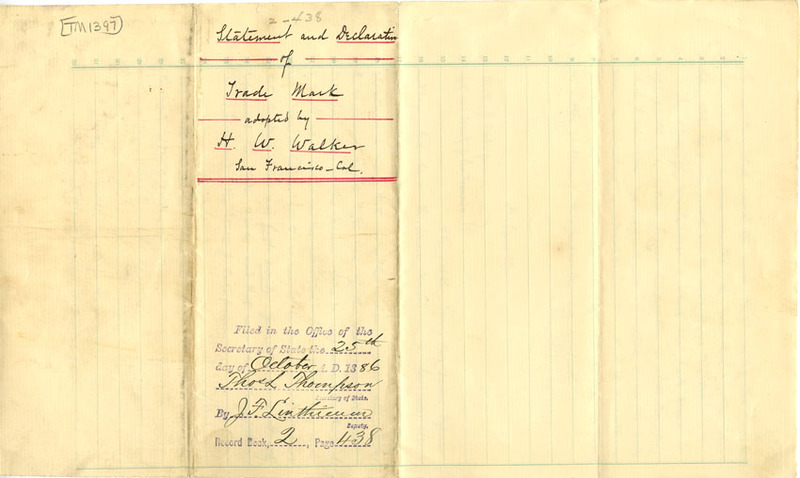 [TM1397]
2-438
Statement and Declaration
of
Trade Mark
adopted by
H. W. Walker
San Francisco - Cal.
Filed in the Office of the
Secretary of State the 25th
day of October A. D. 1886
Thos L Thompson
Secretary of State.
By J. F. Linthicum
Deputy.
Record Book, 2, Page 438